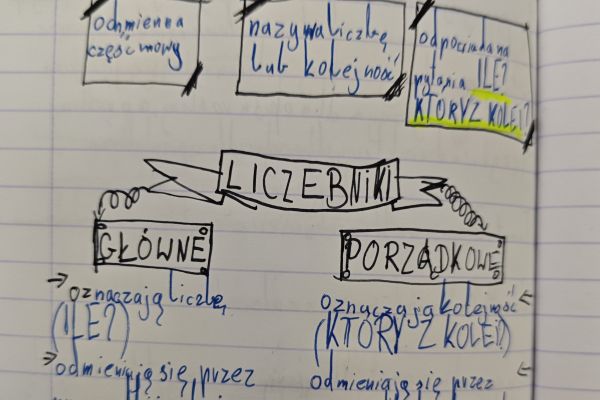 odmienna
część mowy
nazywa liczbę
lub kolejność
odpowiada na
pytania ILE?
KTÓRY Z KOLEI?
LICZEBNIKI
GŁÓWNE
PORZĄDKOWE
→ oznaczają liczbę
(ILE?)
→ odmieniają się przez
oznaczają kolejność ←
(KTÓRY Z KOLEI?)
odmieniają się przez ←